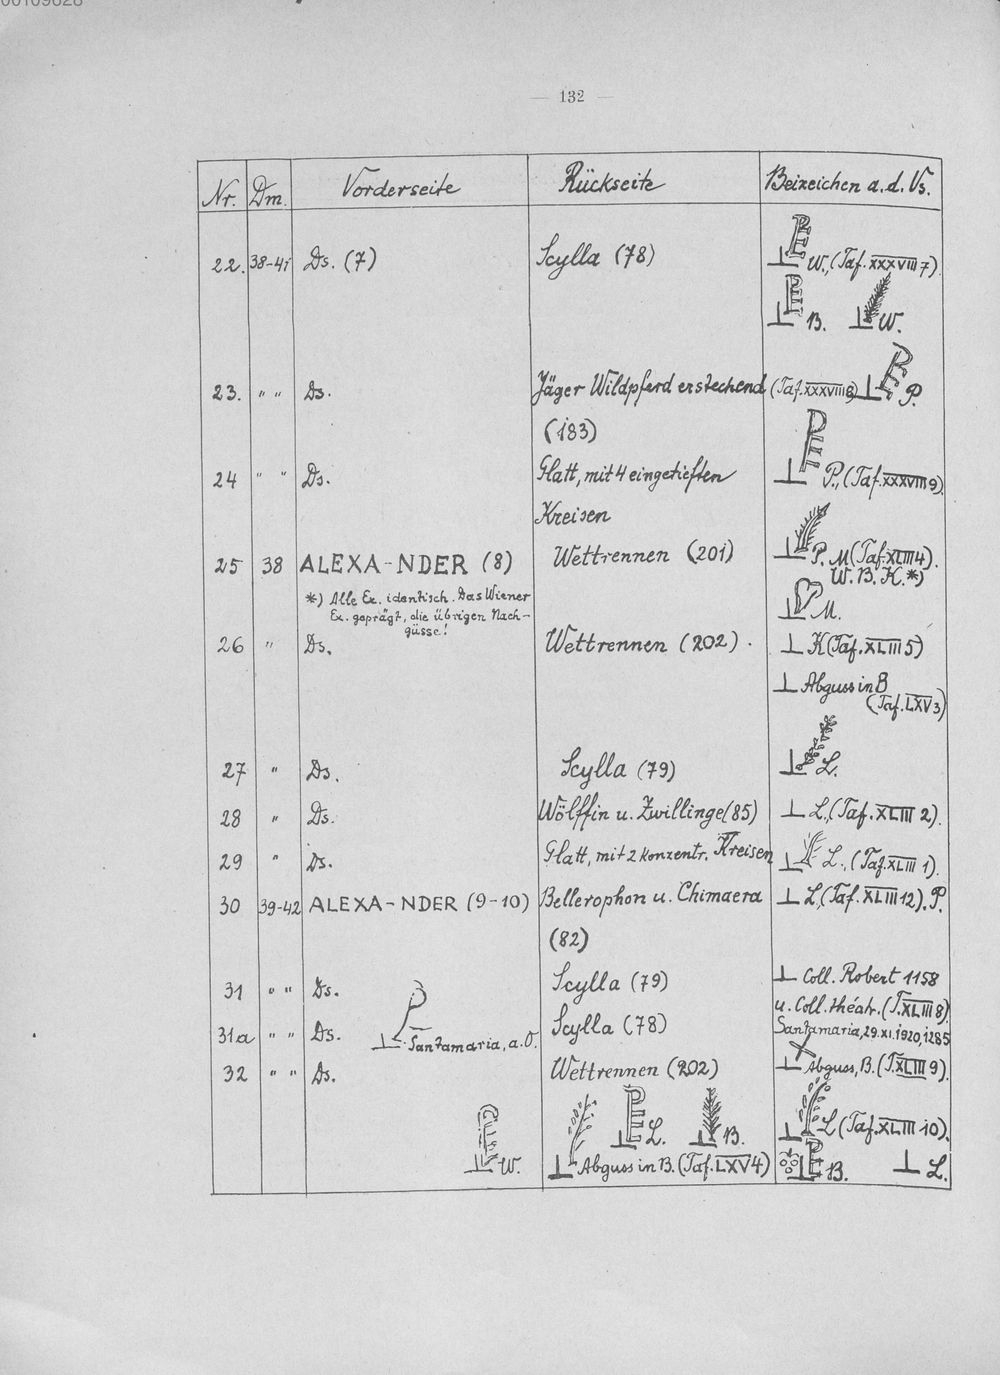 00109828
— 132 —
Nr. Dm. Vorderseite Rückseite Beizeichen a.d. Vs.
22. 38-41 Ds. (7) Scylla (78) W., (Taf. XXXVIII 7)
B. W.
23. " " Ds. Jäger Wildpferd erstechend (Taf. XXXVIII 8) P.
(183)
24 " " Ds. Glatt, mit 4 eingetieften P., (Taf. XXXVIII 9)
Kreisen
25 38 ALEXA-NDER (8) Wettrennen (201) P. M (Taf. XLIII 4).
W. B. K. *)
*) Alle Ex. identisch. Das Wiener
Ex. geprägt, die übrigen Nach-
güsse!
M.
26 " Ds. Wettrennen (202). K (Taf. XLIII 5)
Abguss in B
(Taf. LXV 3)
27 " Ds. Scylla (79) L.
28 " Ds. Wölffin u. Zwillinge (85) L, (Taf. XLIII 2).
29 " Ds. Glatt, mit 2 konzentr. Kreisen L., (Taf. XLIII 1).
30 39-42 ALEXA-NDER (9-10) Bellerophon u. Chimaera L, (Taf. XLIII 12). P.
(82)
31 " " Ds. Scylla (79) Coll. Robert 1158
u. Coll. théatr. (T. XLIII 8)
31a " " Ds. Santamaria, a.O. Scylla (78) Santamaria, 29. XI. 1920, 1285
32 " " Ds. Wettrennen (202) Abguss, B. (T. XLIII 9).
L. B. L (Taf. XLIII 10).
W. Abguss in B. (Taf. LXV 4) B. L.